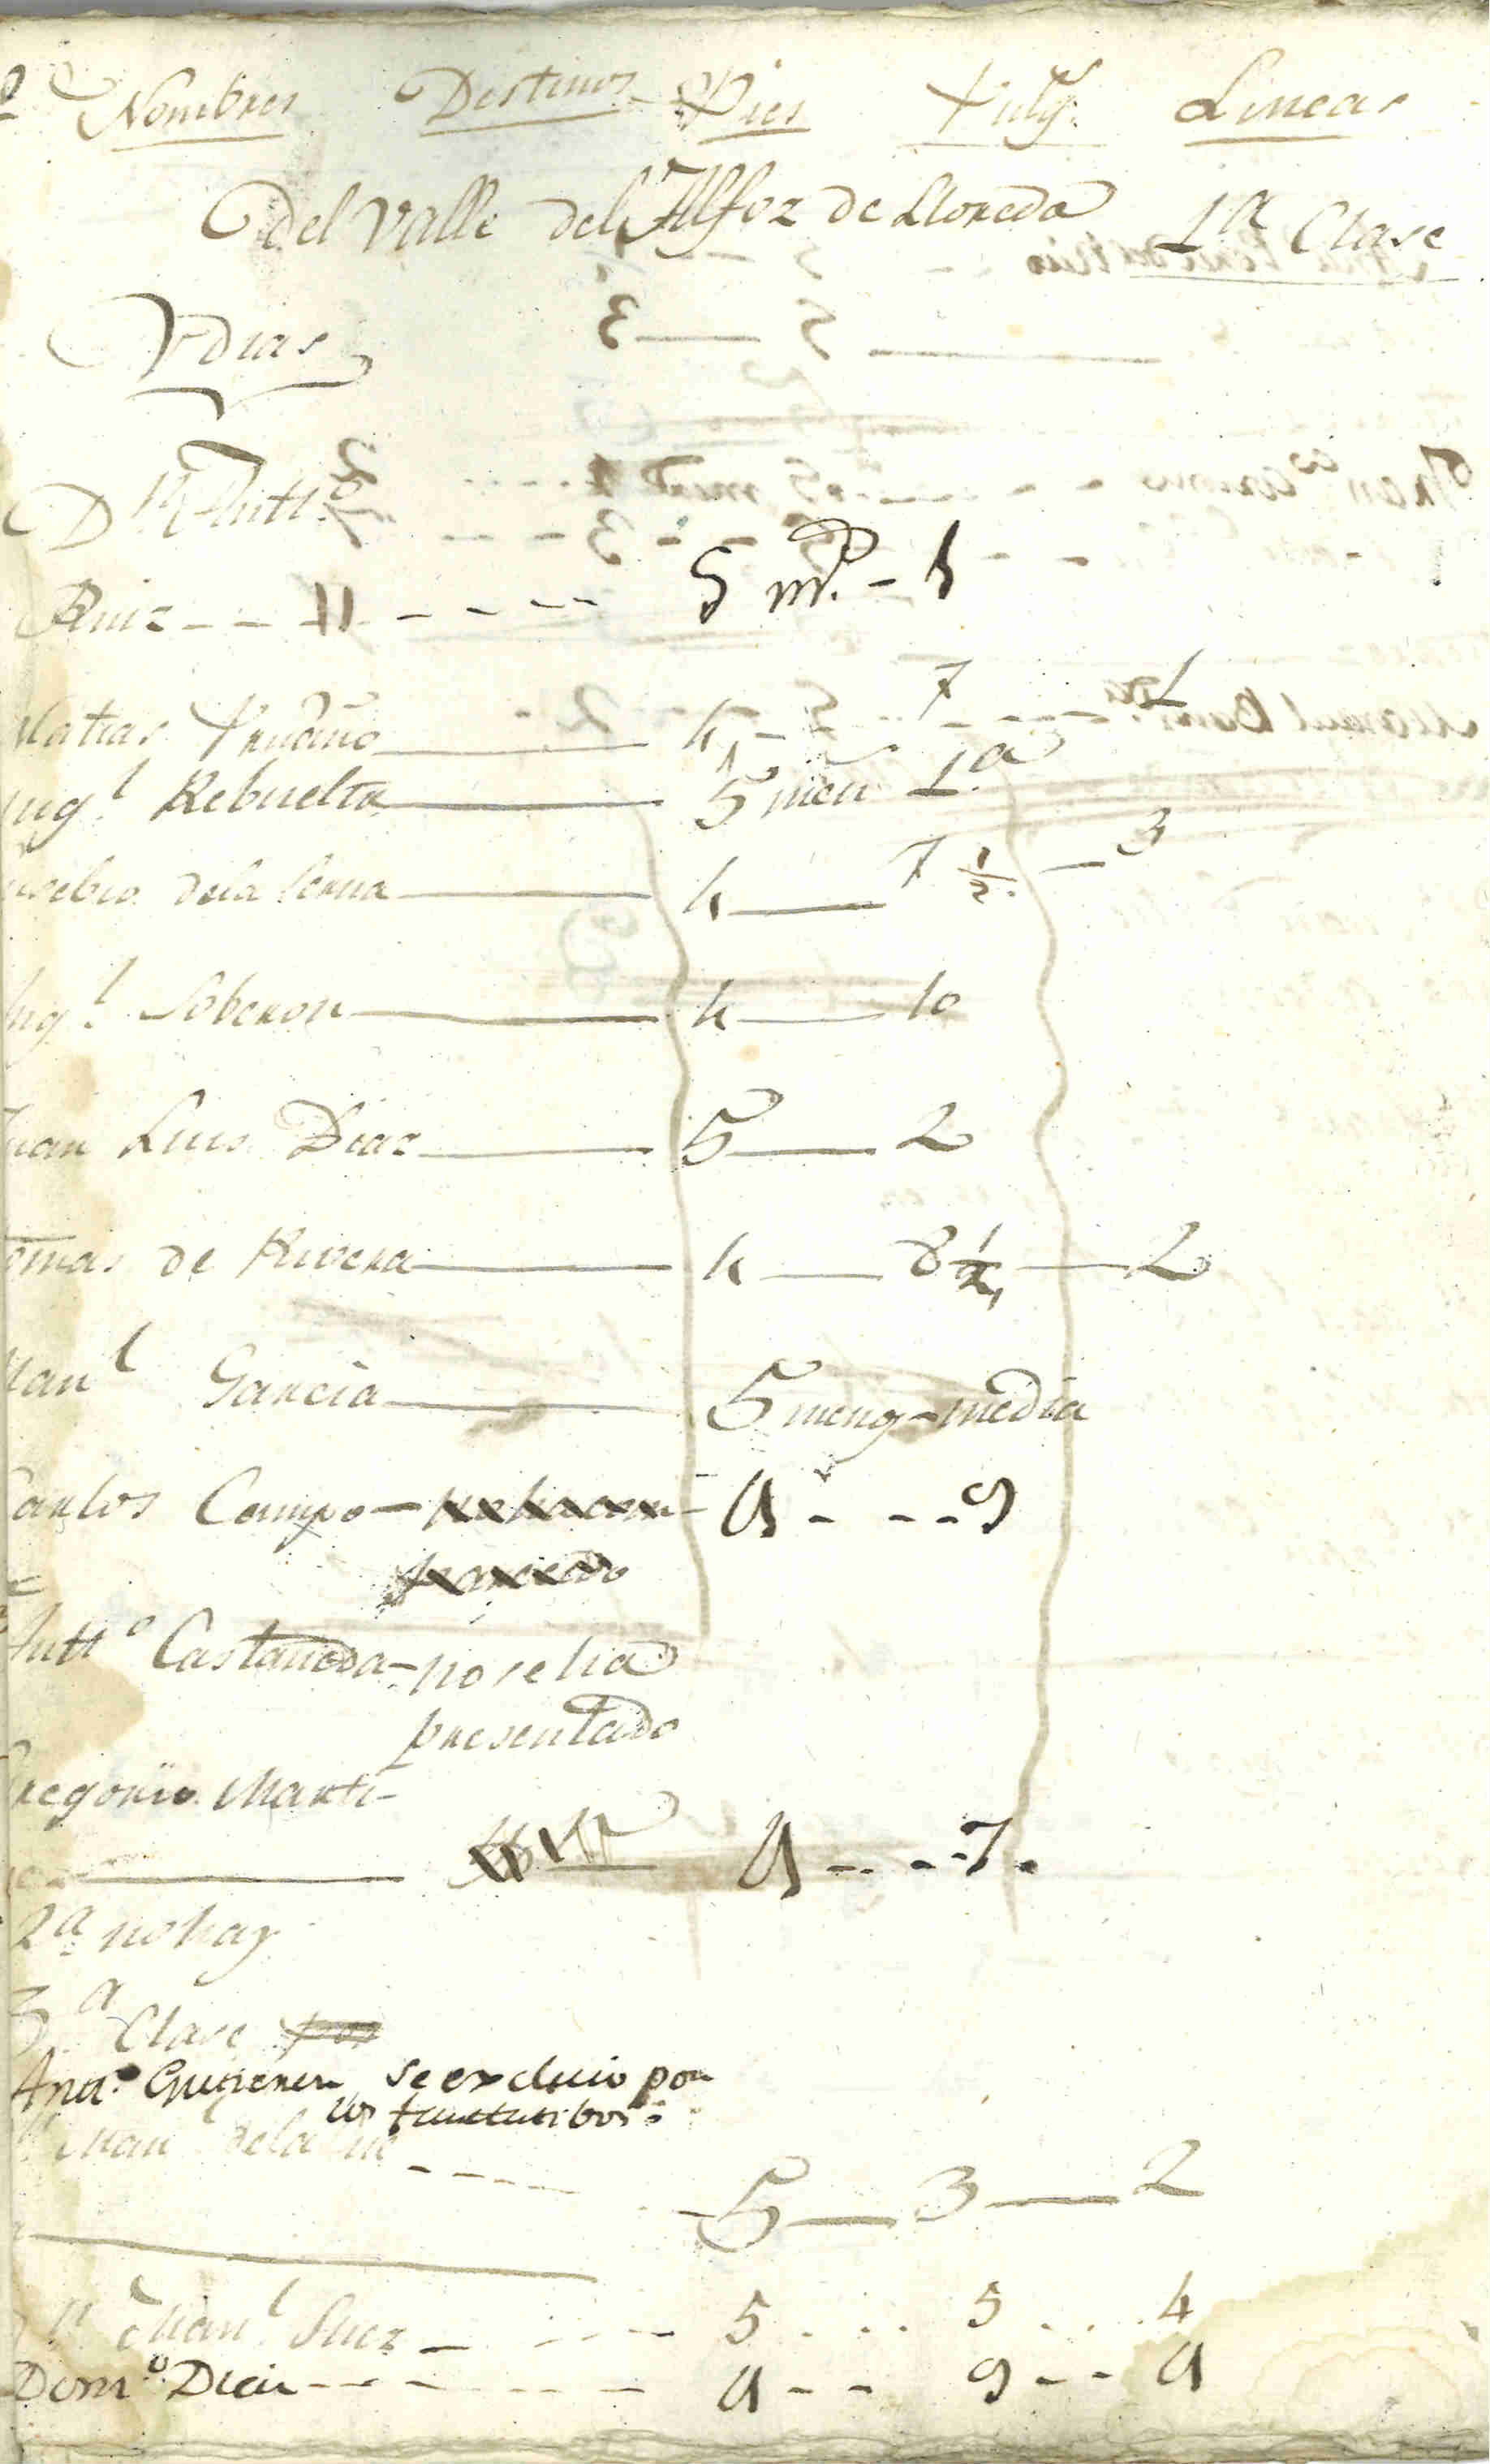 Nombres Destinos Pies Pulg.s Lineas
Del Valle del Alfoz de Lloreda 1.a Clase
Ydias
D.n Antt.o
Ruiz 5 m.s - 1
Matias Trudiño 4 - 7 - 1
Mig.l Rebuelta 5 men 1.a
usebio dela Serna 4 7 1/2 - 3
Mig.l Soberon 4 10
Juan Luis Diaz 5 2
omas de Rivera 4 8 1/2 2
Man.l Garcia 5 meng media
Carlos Campo - 4 - - - 9
Antt.o Castaneda - no se ha
presentado
Gregorio Marti-
4 - - - 7.
2.a no hay
3.a Clase
se excluio por
Man.l dela
5 3 2
Man.l Saez 5 5 4
Dom.o Diaz 4 - - 9 - - 4